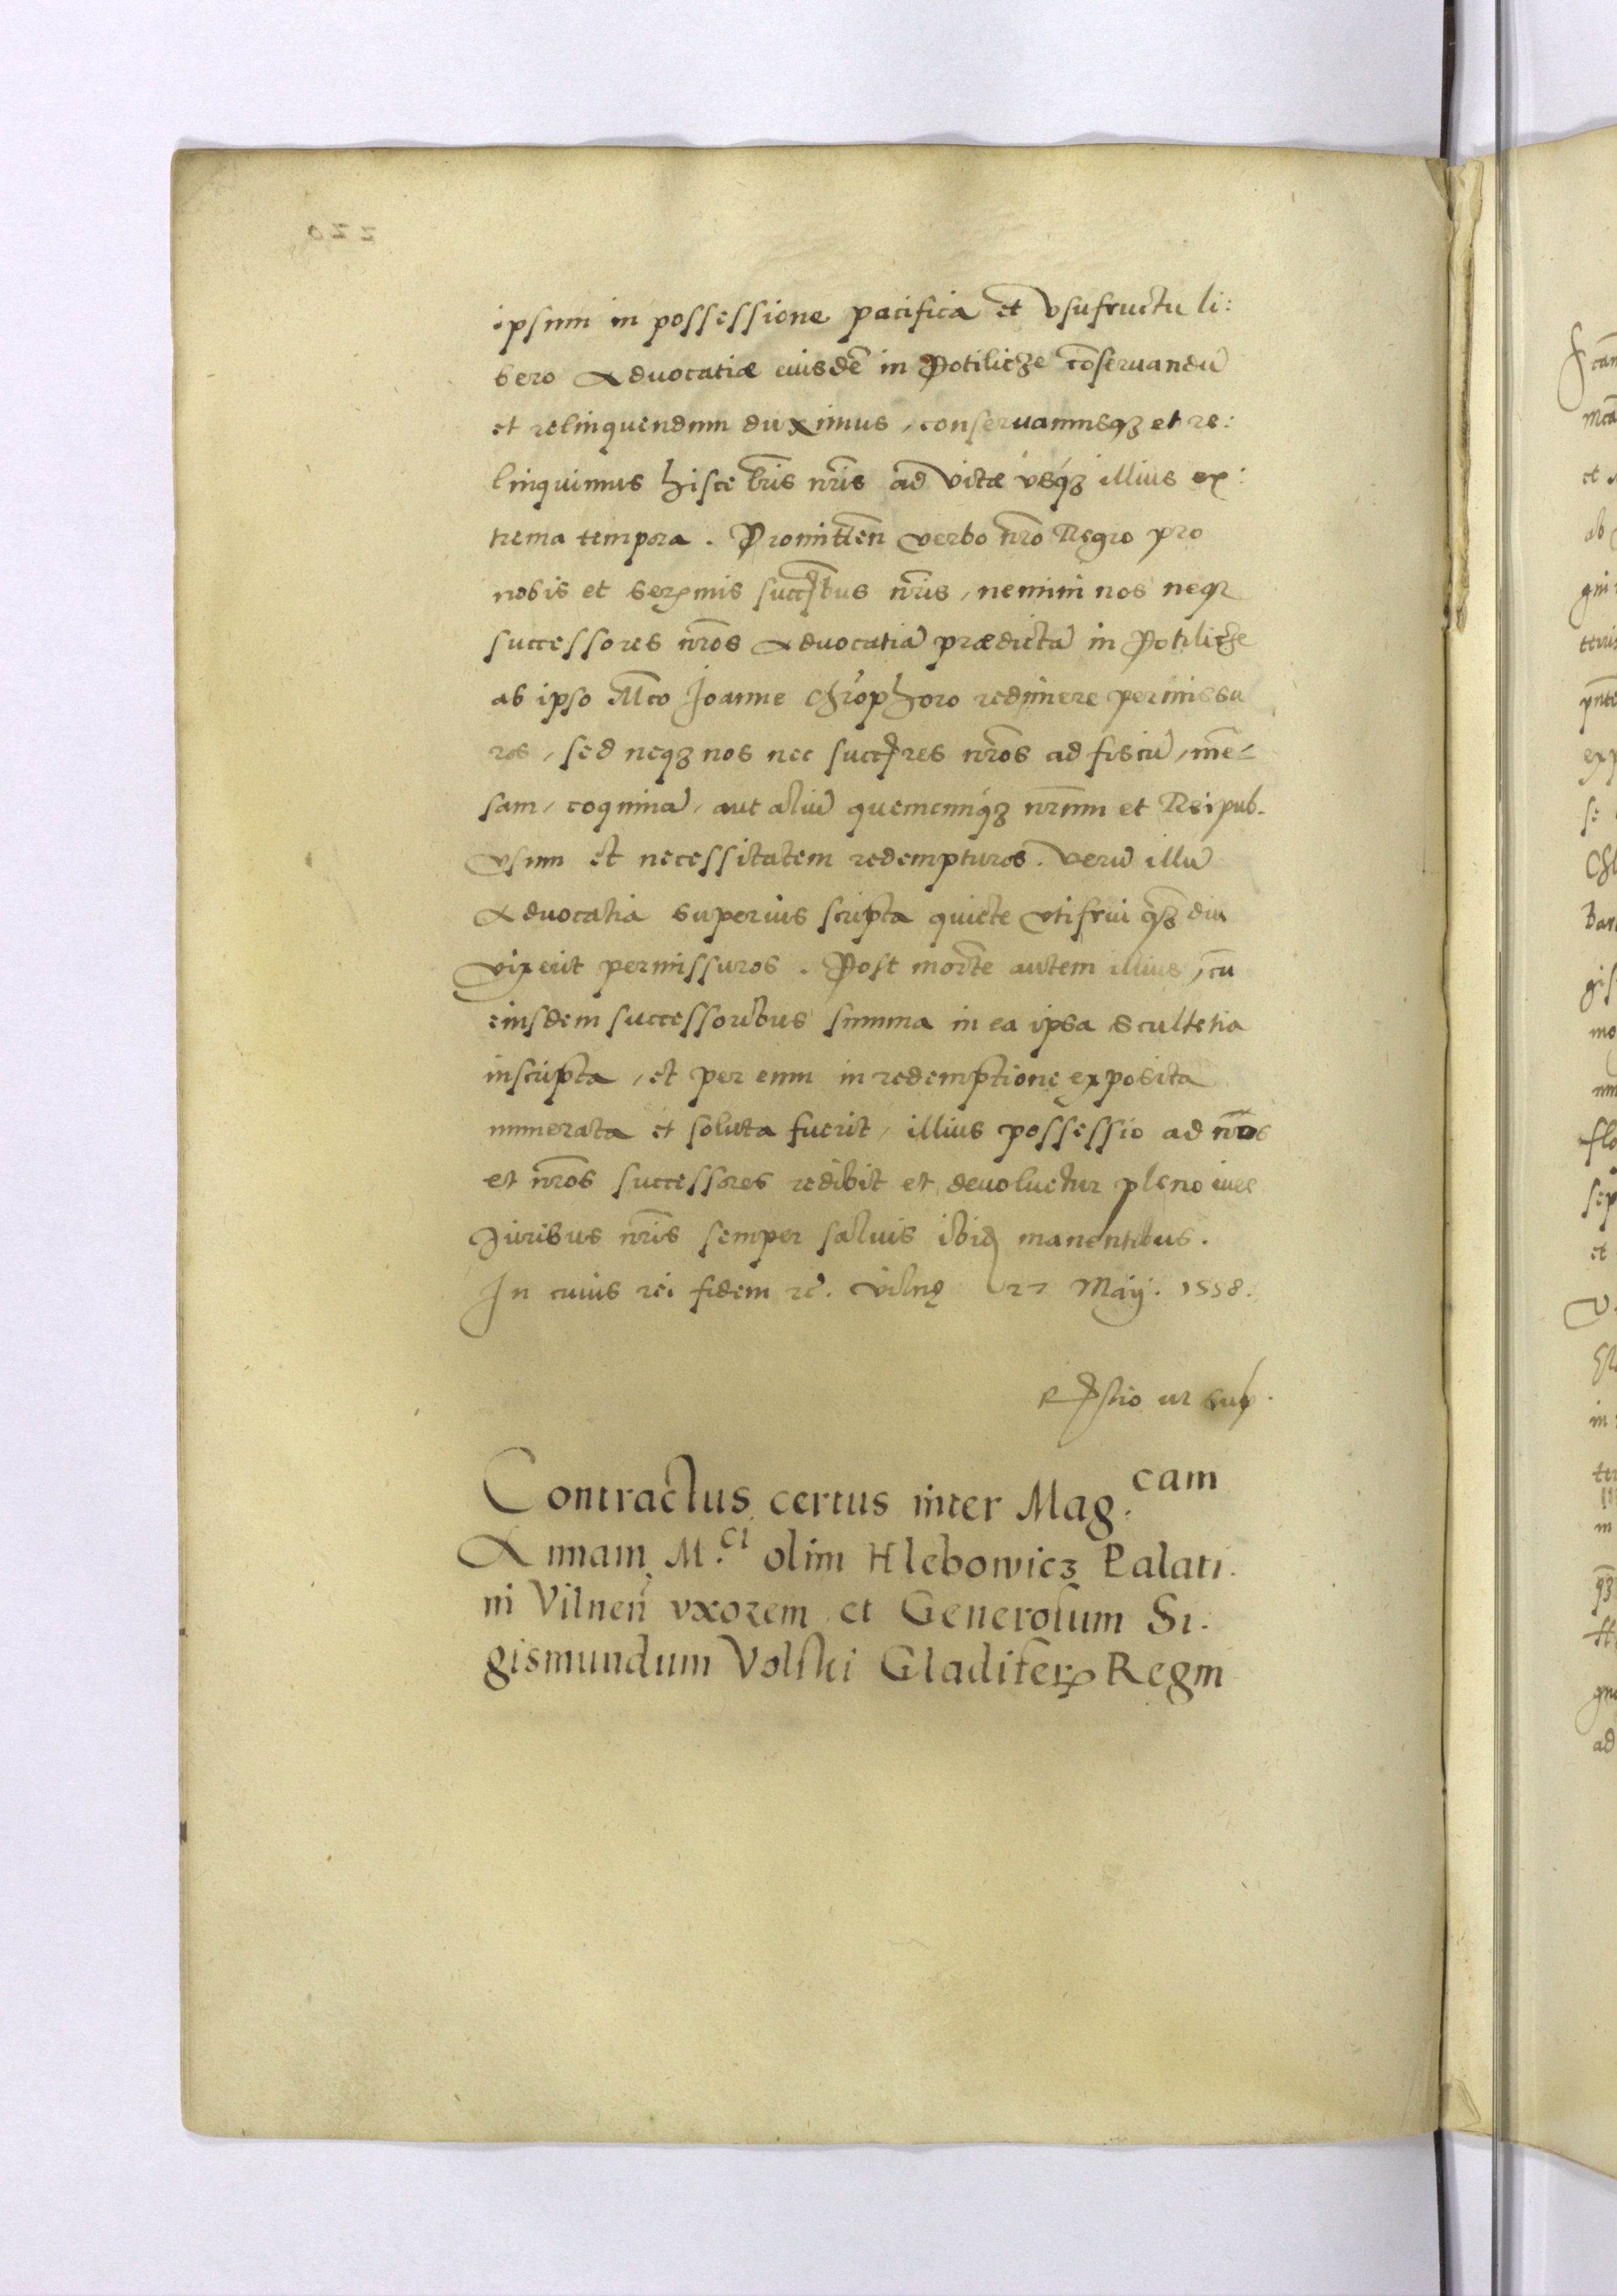 ipsum in possessione pacifica et vsufructu li:
bero Aduocatiæ eiusdē in Potilicze cōseruandū
et relinquendum duximus, conseruamusqꝫ et re:
linquimus hisce lr̄is nr̄is ad vitæ vsqꝫ illius ex:
trema tempora. Promittēn verbo nr̄o Regio pro
nobis et Serꝫmis succꝫbus nr̄is, nemini nos neqꝫ
successores nr̄os Aduocatiā prædictā in Potilicze
ab ipso Mco Joanne Chr̄ophoro redimere permissu
ros, sed neqꝫ nos nec succꝫres nr̄os ad fiscū, mē-
sam, coquinā, aut aliū quemcunqꝫ nr̄um et Reipub.
vsum et necessitatem redempturos. Verū illū
Aduocatia superius scripta quiete vtifrui qꝫ diu
vixerit permissuros. Post mortē autem illius, cū
eiusdem successoribus summa in ea ipsa scultetia
inscripta, et per eum in redemptione exposita
numerata et soluta fuerit, illius possessio ad nos
et nr̄os successores redibit et deuoluetur pleno iure
Juribus nr̄is semper saluis ibidꝫ manentibus.
In cuius rei fidem rc̄. Vilnę 27 Maij. 1558.
Rꝫstio ut sup.
Contractus certus inter Mag.cam
Annam M.ci olim Hlebowicz Palati.
ni Vilnen̄ vxorem et Generosum Si.
gismundum Volski Gladiferꝫ Regni